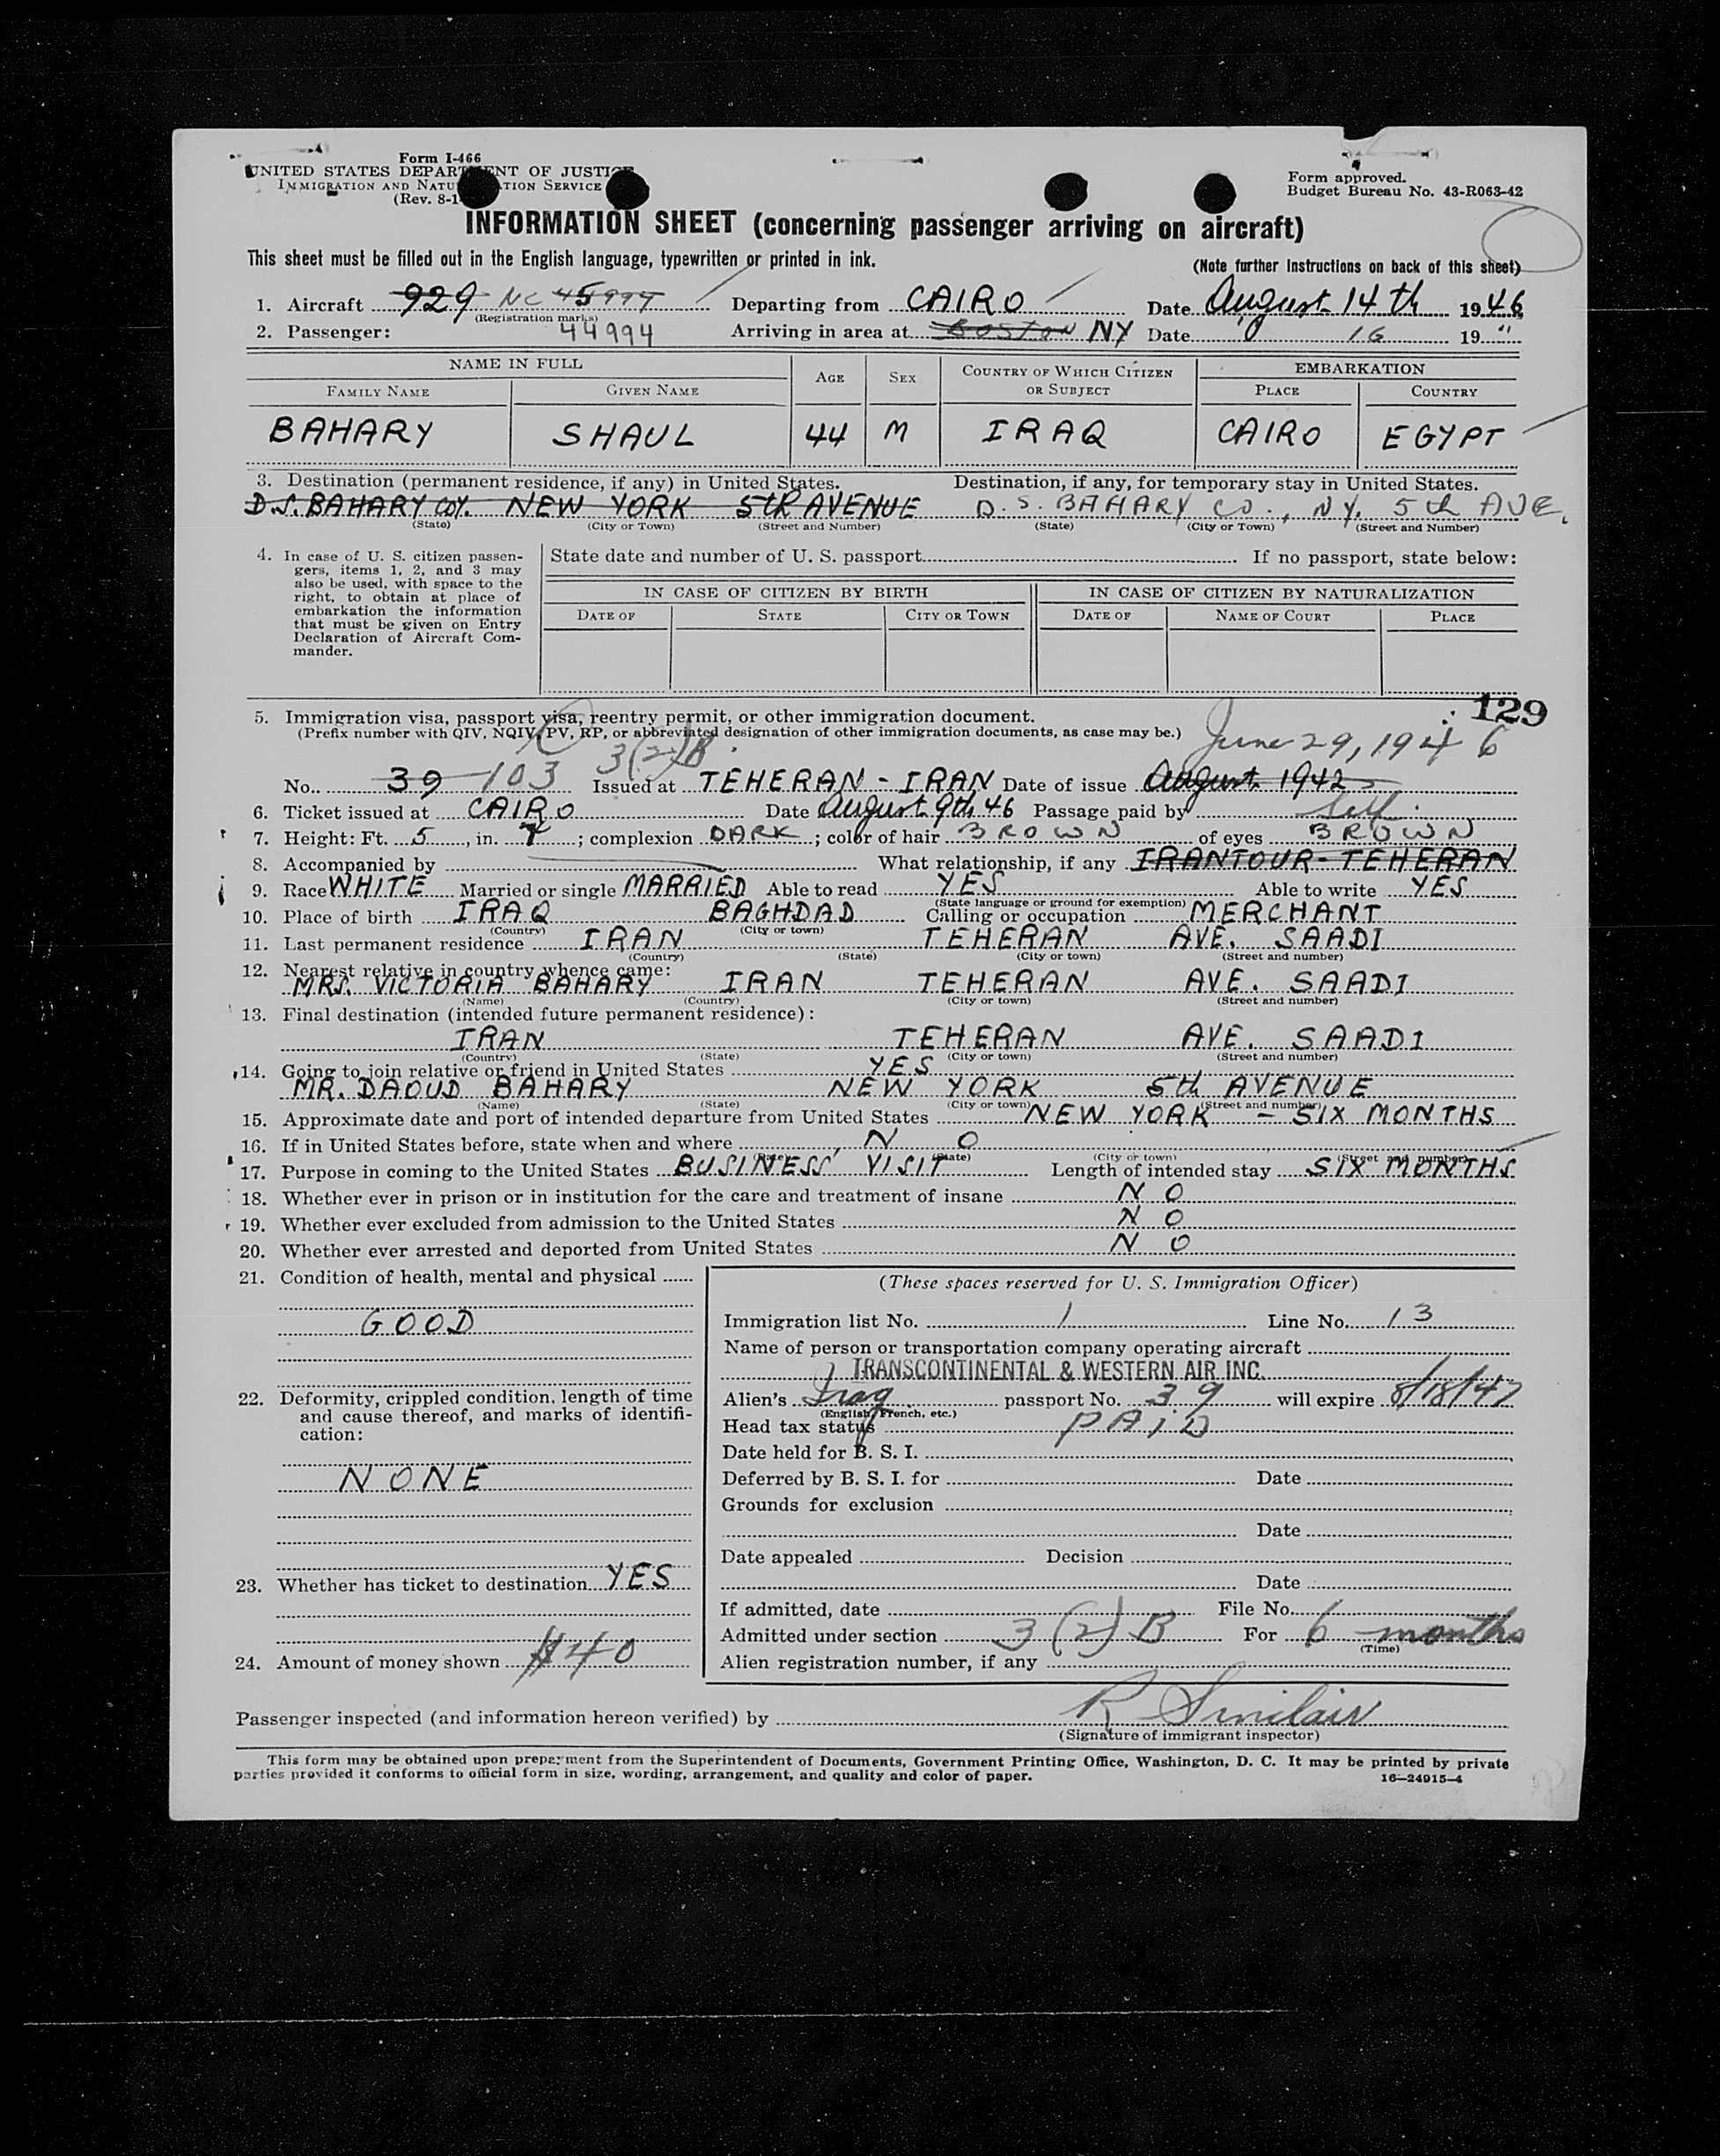 Form I-466
UNITED STATES DEPARTMENT OF JUSTICE
IMMIGRATION AND NATURALIZATION SERVICE
(Rev. 8-1
Form approved.
Budget Bureau No. 43-R063-42
INFORMATION SHEET (concerning passenger arriving on aircraft)
This sheet must be filled out in the English language, typewritten or printed in ink.
(Note further instructions on back of this sheet)
1. Aircraft 929 NC 45994 Departing from CAIRO Date August 14th 1946
(Registration marks)
2. Passenger: 44994 Arriving in area at BOSTON NY Date " 16 19 "
NAME IN FULL AGE SEX COUNTRY OF WHICH CITIZEN OR SUBJECT EMBARKATION
FAMILY NAME GIVEN NAME PLACE COUNTRY
BAHARY SHAUL 44 M IRAQ CAIRO EGYPT
3. Destination (permanent residence, if any) in United States. Destination, if any, for temporary stay in United States.
D.S. BAHARY COY. NEW YORK 5th AVENUE D. S. BAHARY CO., NY. 5th AVE.
(State) (City or Town) (Street and Number) (State) (City or Town) (Street and Number)
4. In case of U. S. citizen passen-
gers, items 1, 2, and 3 may
also be used, with space to the
right, to obtain at place of
embarkation the information
that must be given on Entry
Declaration of Aircraft Com-
mander.
State date and number of U. S. passport If no passport, state below:
IN CASE OF CITIZEN BY BIRTH IN CASE OF CITIZEN BY NATURALIZATION
DATE OF STATE CITY OR TOWN DATE OF NAME OF COURT PLACE
129
5. Immigration visa, passport visa, reentry permit, or other immigration document.
(Prefix number with QIV, NQIV, PV, RP, or abbreviated designation of other immigration documents, as case may be.)
3(2)B June 29, 1946
No. 39 103 Issued at TEHERAN - IRAN Date of issue August 1942
6. Ticket issued at CAIRO Date August 9th 46 Passage paid by Self
7. Height: Ft. 5, in. 7; complexion DARK; color of hair BROWN of eyes BROWN
8. Accompanied by What relationship, if any IRANTOUR-TEHERAN
9. Race WHITE Married or single MARRIED Able to read YES Able to write YES
(State language or ground for exemption)
10. Place of birth IRAQ BAGHDAD Calling or occupation MERCHANT
(Country) (City or town)
11. Last permanent residence IRAN TEHERAN AVE. SAADI
(Country) (State) (City or town) (Street and number)
12. Nearest relative in country whence came:
MRS. VICTORIA BAHARY IRAN TEHERAN AVE. SAADI
(Name) (Country) (City or town) (Street and number)
13. Final destination (intended future permanent residence):
IRAN TEHERAN AVE. SAADI
(Country) (State) (City or town) (Street and number)
14. Going to join relative or friend in United States YES
MR. DAOUD BAHARY NEW YORK 5th AVENUE
(Name) (State) (City or town) (Street and number)
15. Approximate date and port of intended departure from United States NEW YORK - SIX MONTHS
16. If in United States before, state when and where NO
(Date) (State) (City or town) (Street and number)
17. Purpose in coming to the United States BUSINESS VISIT Length of intended stay SIX MONTHS
18. Whether ever in prison or in institution for the care and treatment of insane NO
19. Whether ever excluded from admission to the United States NO
20. Whether ever arrested and deported from United States NO
21. Condition of health, mental and physical
GOOD
22. Deformity, crippled condition, length of time
and cause thereof, and marks of identifi-
cation:
NONE
23. Whether has ticket to destination YES
24. Amount of money shown $40
(These spaces reserved for U. S. Immigration Officer)
Immigration list No. 1 Line No. 13
Name of person or transportation company operating aircraft
TRANSCONTINENTAL & WESTERN AIR INC.
Alien's Iraq passport No. 39 will expire 8/18/47
(English, French, etc.)
Head tax status PAID
Date held for B. S. I.
Deferred by B. S. I. for Date
Grounds for exclusion
Date
Date appealed Decision
Date
If admitted, date File No.
Admitted under section 3(2)B For 6 months
(Time)
Alien registration number, if any
Passenger inspected (and information hereon verified) by R Sinclair
(Signature of immigrant inspector)
This form may be obtained upon prepayment from the Superintendent of Documents, Government Printing Office, Washington, D. C. It may be printed by private
parties provided it conforms to official form in size, wording, arrangement, and quality and color of paper.
16—24915-4